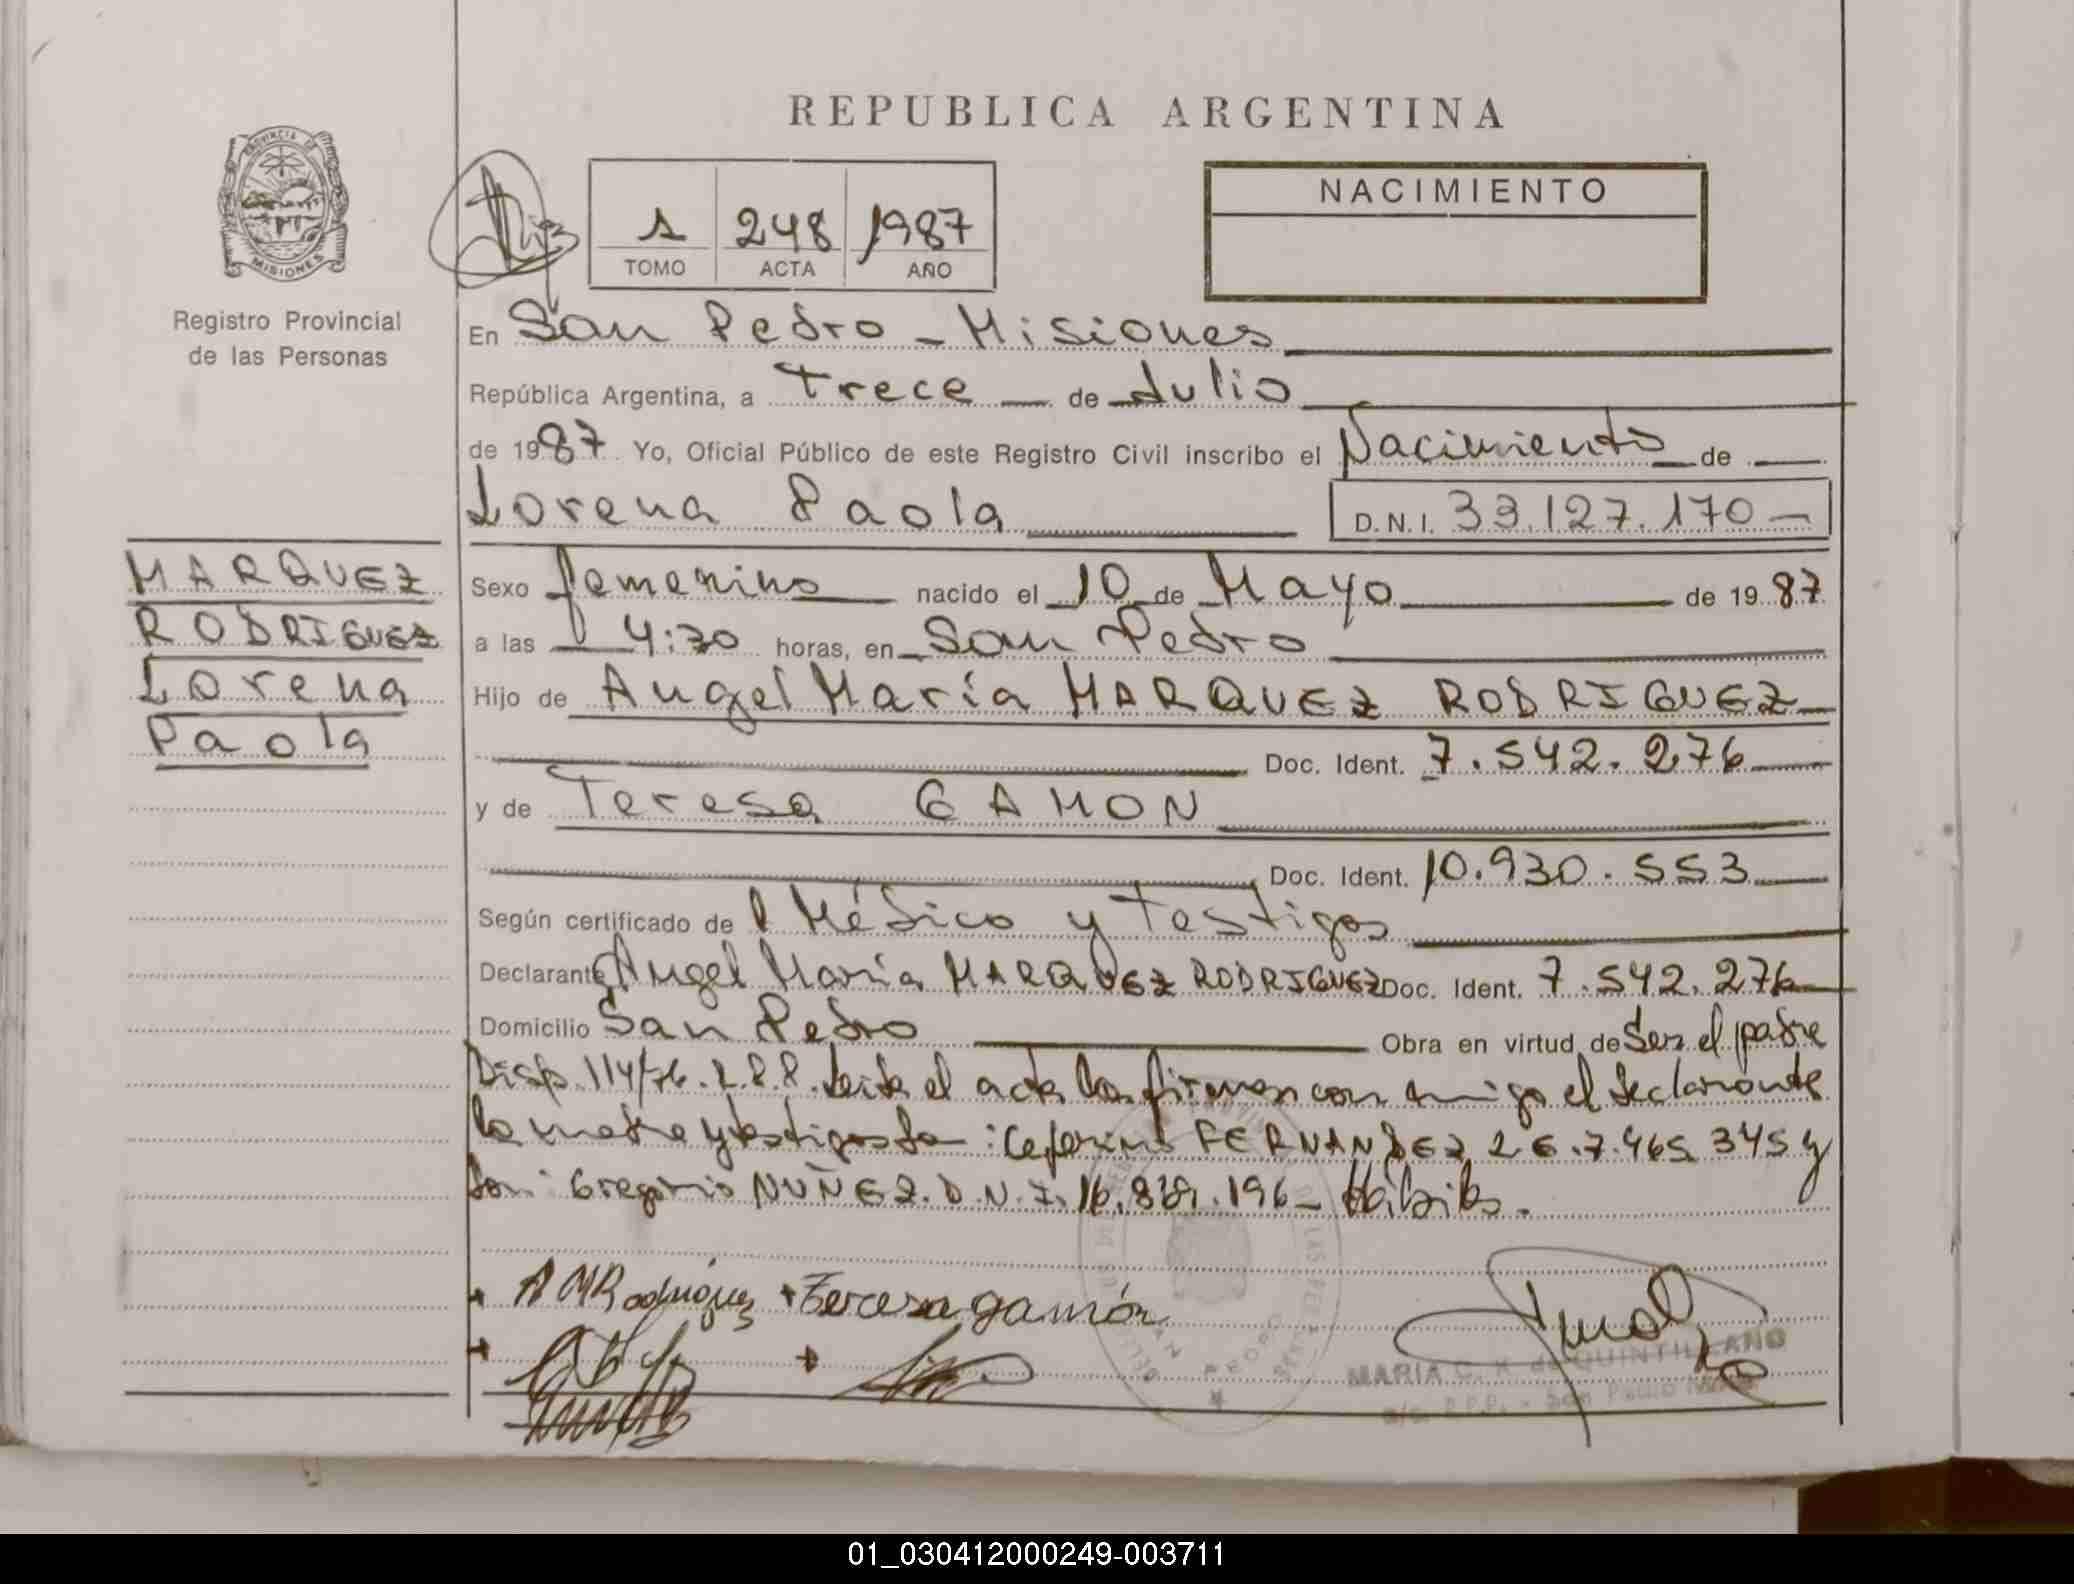 REPUBLICA ARGENTINA
PROVINCIA DE
MISIONES
Registro Provincial
de las Personas
1 248 1987
TOMO ACTA AÑO
NACIMIENTO
En San Pedro - Misiones
República Argentina, a Trece de Julio
de 1987 Yo, Oficial Público de este Registro Civil inscribo el Nacimiento de
Lorena Paola D.N.I. 33.127.170
MARQUEZ
RODRIGUEZ
Lorena
Paola
Sexo femenino nacido el 10 de Mayo de 1987
a las 4:30 horas, en San Pedro
Hijo de Angel María MARQUEZ RODRIGUEZ
Doc. Ident. 7.542.276
y de Teresa GAMON
Doc. Ident. 10.930.553
Según certificado de Médico y Testigos
Declarante Angel María MARQUEZ RODRIGUEZ Doc. Ident. 7.542.276
Domicilio San Pedro Obra en virtud de Ser el padre
Disp. 114/76. leída el acta la firman con migo el declarante
la madre y testigos : Ceferino FERNANDEZ 7.465.345 y
Gregorio NUÑEZ. D.N.I. 16.829.196
A M Rodriguez Teresa gamón
SAN PEDRO
MARIA C. K. de QUINTILLANO
R.P.P. - San Pedro
01_030412000249-003711